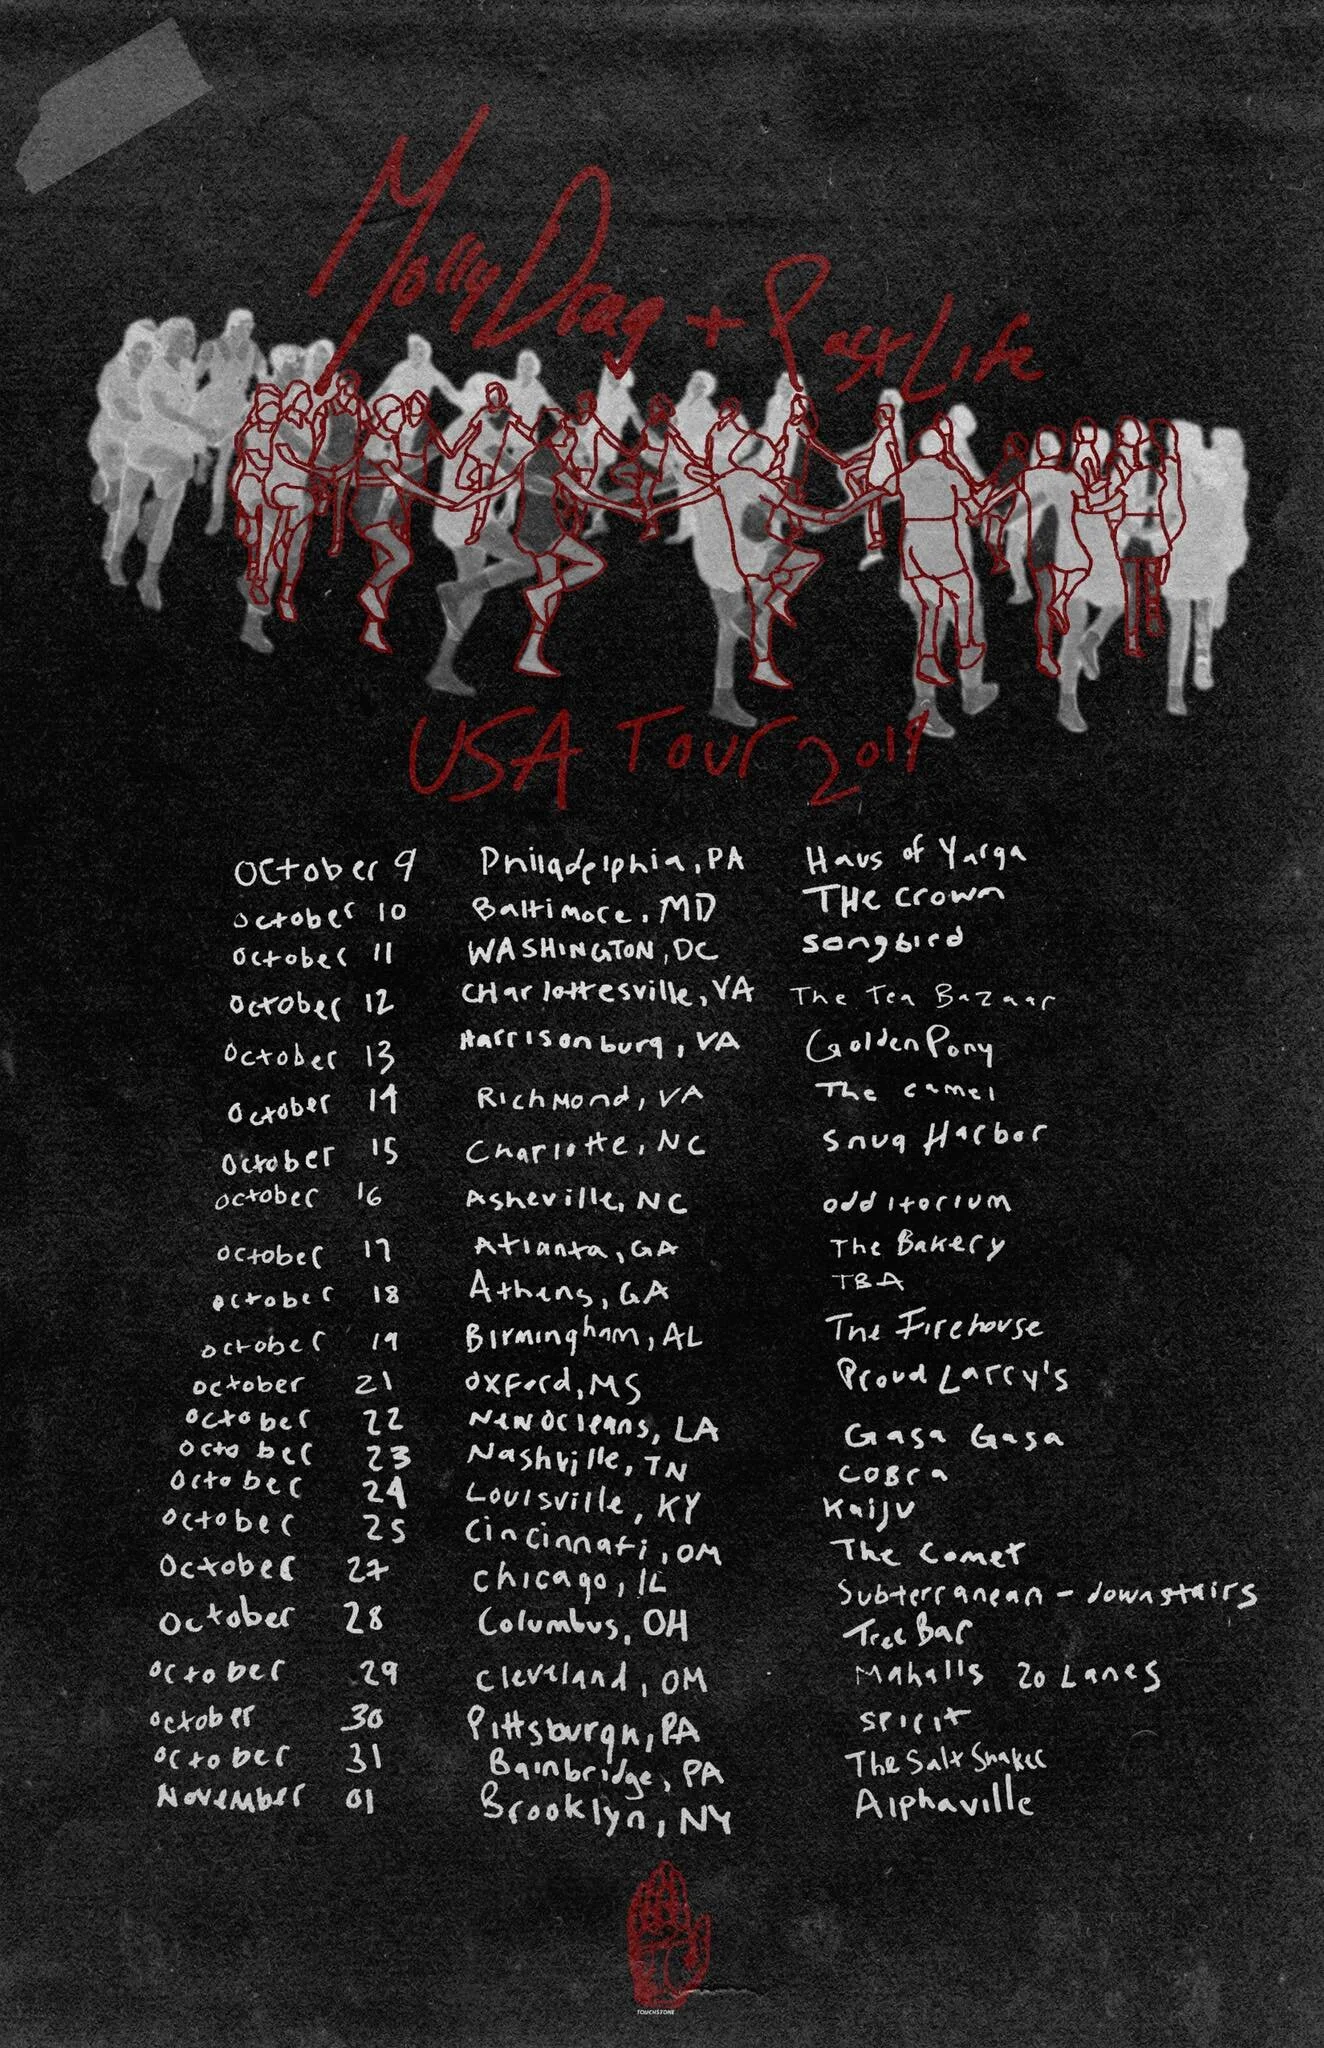 Molly Drag + Past Life
USA Tour 2019
October 9 Philadelphia, PA Haus of Yarga
October 10 Baltimore, MD THe Crown
October 11 WASHINGTON, DC songbird
October 12 CHarlottesville, VA The Tea Bazaar
October 13 Harrisonburg, VA Golden Pony
October 14 RichMond, VA The camel
October 15 Charlotte, NC Snug Harbor
October 16 Asheville, NC odditorium
October 17 Atlanta, GA The Bakery
October 18 Athens, GA TBA
October 19 Birmingham, AL The Firehouse
October 21 Oxford, MS Proud Larry's
October 22 New Orleans, LA Gasa Gasa
October 23 Nashville, TN Cobra
October 24 Louisville, KY Kaiju
October 25 Cincinnati, OM The Comet
October 27 Chicago, IL Subterranean - downstairs
October 28 Columbus, OH Tree Bar
October 29 Cleveland, OM Mahalls 20 Lanes
October 30 Pittsburgh, PA Spirit
October 31 Bainbridge, PA The Salt Shaker
November 01 Brooklyn, NY Alphaville
TOUCHSTONE